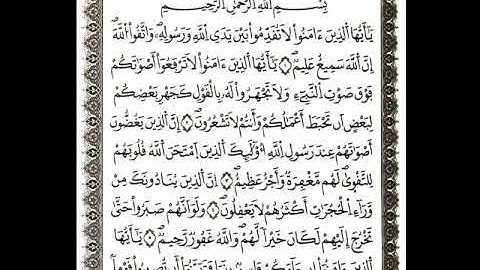 بِسْمِ ٱللَّهِ ٱلرَّحْمَٰنِ ٱلرَّحِيمِ
يَٰٓأَيُّهَا ٱلَّذِينَ ءَامَنُوا۟ لَا تُقَدِّمُوا۟ بَيْنَ يَدَىِ ٱللَّهِ وَرَسُولِهِۦ وَٱتَّقُوا۟ ٱللَّهَ
إِنَّ ٱللَّهَ سَمِيعٌ عَلِيمٌ ١ يَٰٓأَيُّهَا ٱلَّذِينَ ءَامَنُوا۟ لَا تَرْفَعُوٓا۟ أَصْوَٰتَكُمْ
فَوْقَ صَوْتِ ٱلنَّبِىِٓٔ وَلَا تَجْهَرُوا۟ لَهُۥ بِٱلْقَوْلِ كَجَهْرِ بَعْضِكُمْ
لِبَعْضٍ أَن تَحْبَطَ أَعْمَٰلُكُمْ وَأَنتُمْ لَا تَشْعُرُونَ ٢ إِنَّ ٱلَّذِينَ يَغُضُّونَ
أَصْوَٰتَهُمْ عِندَ رَسُولِ ٱللَّهِ أُو۟لَٰٓئِكَ ٱلَّذِينَ ٱمْتَحَنَ ٱللَّهُ قُلُوبَهُمْ
لِلتَّقْوَىٰ لَهُم مَّغْفِرَةٌ وَأَجْرٌ عَظِيمٌ ٣ إِنَّ ٱلَّذِينَ يُنَادُونَكَ مِن
وَرَآءِ ٱلْحُجُرَٰتِ أَكْثَرُهُمْ لَا يَعْقِلُونَ ٤ وَلَوْ أَنَّهُمْ صَبَرُوا۟ حَتَّىٰ
تَخْرُجَ إِلَيْهِمْ لَكَانَ خَيْرًا لَّهُمْ وَٱللَّهُ غَفُورٌ رَّحِيمٌ ٥ يَٰٓأَيُّهَا
ٱلَّذِينَ ءَامَنُوٓا۟ إِن جَآءَكُمْ فَاسِقٌۢ بِنَبَإٍ فَتَبَيَّنُوٓا۟ أَن تُصِيبُوا۟ قَوْمًۢا